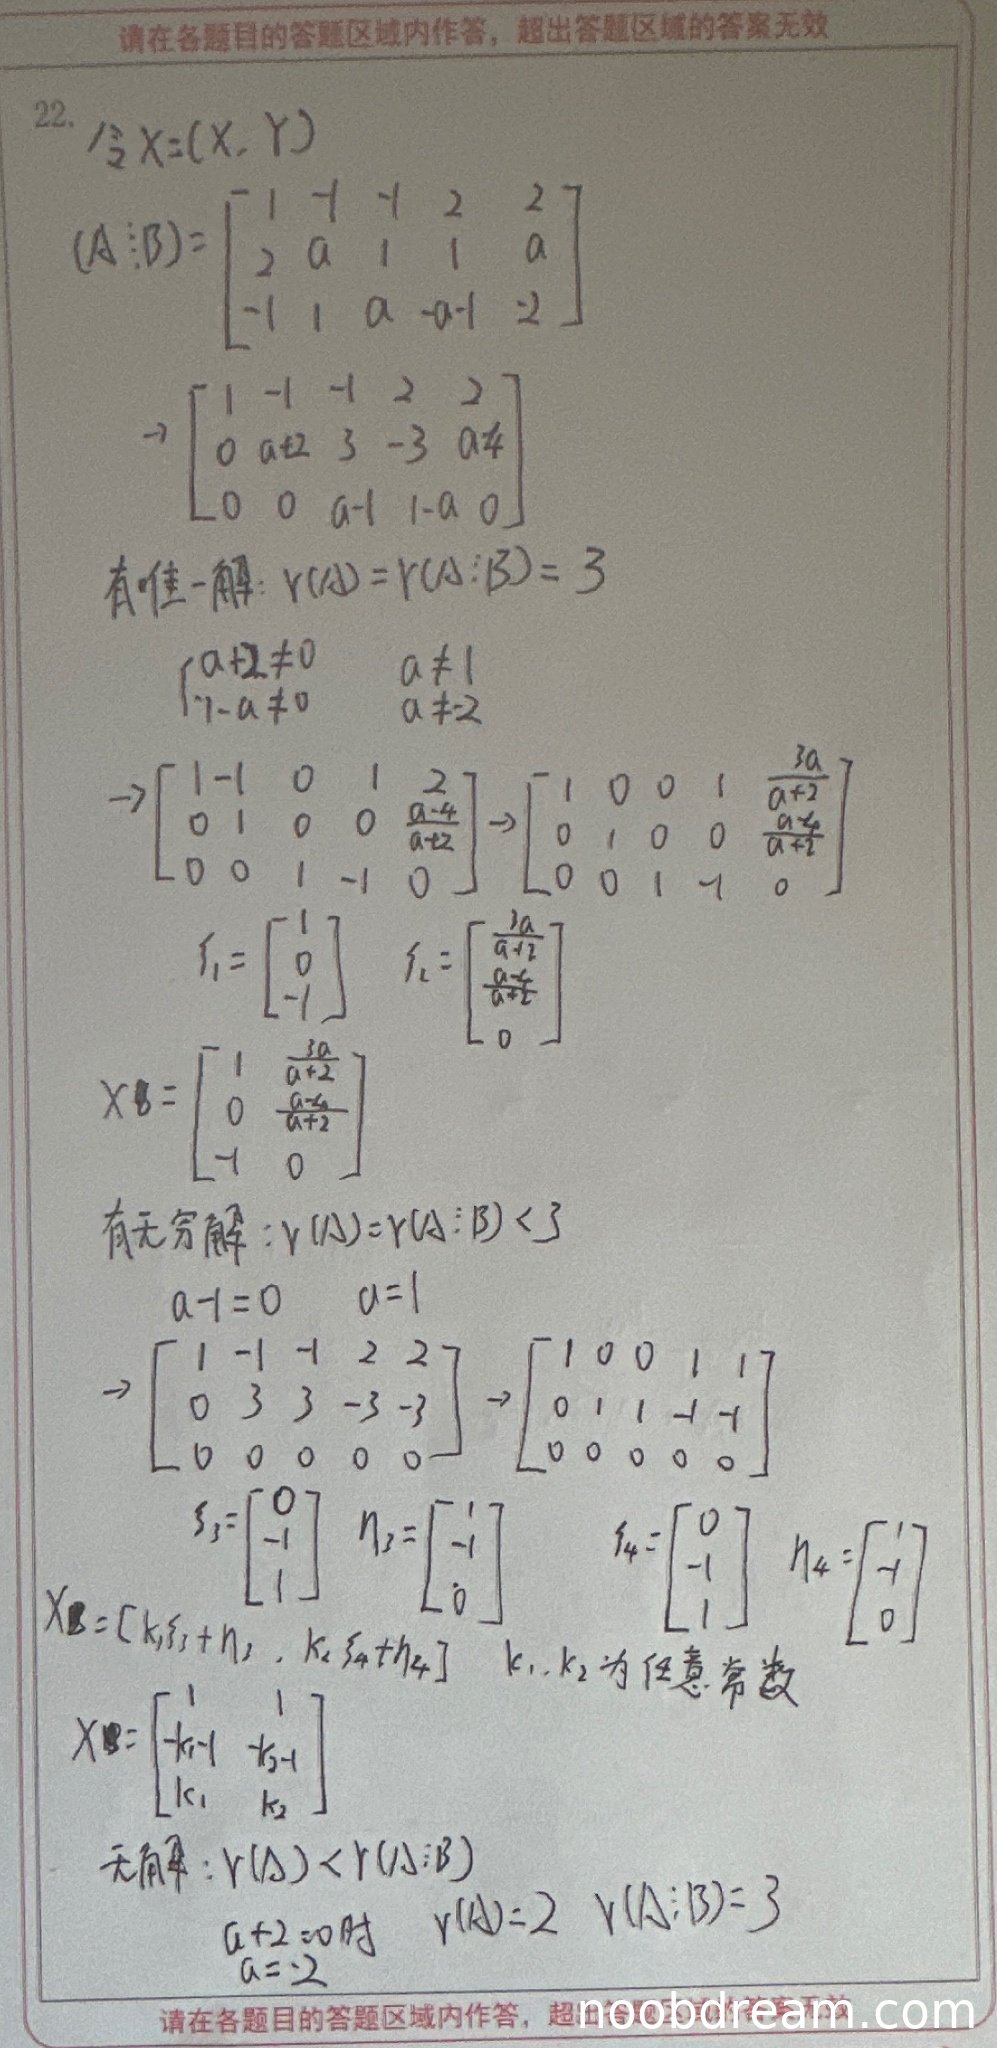 请在各题目的答题区域内作答，超出答题区域的答案无效
22.
令X=(X,Y)
(A⋮B)= [1 -1 -1 2 2
2 a 1 1 a
-1 1 a -a-1 -2]
→ [1 -1 -1 2 2
0 a+2 3 -3 a-4
0 0 a-1 1-a 0]
有唯一解: r(A)=r(A⋮B)=3
{a+2≠0 a≠1
1-a≠0 a≠-2
→ [1 -1 0 1 2
0 1 0 0 (a-4)/(a+2)
0 0 1 -1 0] → [1 0 0 1 3a/(a+2)
0 1 0 0 (a-4)/(a+2)
0 0 1 -1 0]
ξ₁= [1
0
-1] ξ₂= [3a/(a+2)
(a-4)/(a+2)
0]
X = [1 3a/(a+2)
0 (a-4)/(a+2)
-1 0]
有无穷解: r(A)=r(A⋮B)<3
a-1=0 a=1
→ [1 -1 -1 2 2
0 3 3 -3 -3
0 0 0 0 0] → [1 0 0 1 1
0 1 1 -1 -1
0 0 0 0 0]
ξ₃= [0
-1
1] η₃= [1
-1
0] ξ₄= [0
-1
1] η₄= [1
-1
0]
X =[k₁ξ₃+η₃, k₂ξ₄+η₄] k₁,k₂为任意常数
X = [1 1
-k₁-1 -k₂-1
k₁ k₂]
无解: r(A)<r(A⋮B)
a+2=0时 r(A)=2 r(A⋮B)=3
a=-2
请在各题目的答题区域内作答，超出答题区域的答案无效
noobdream.com